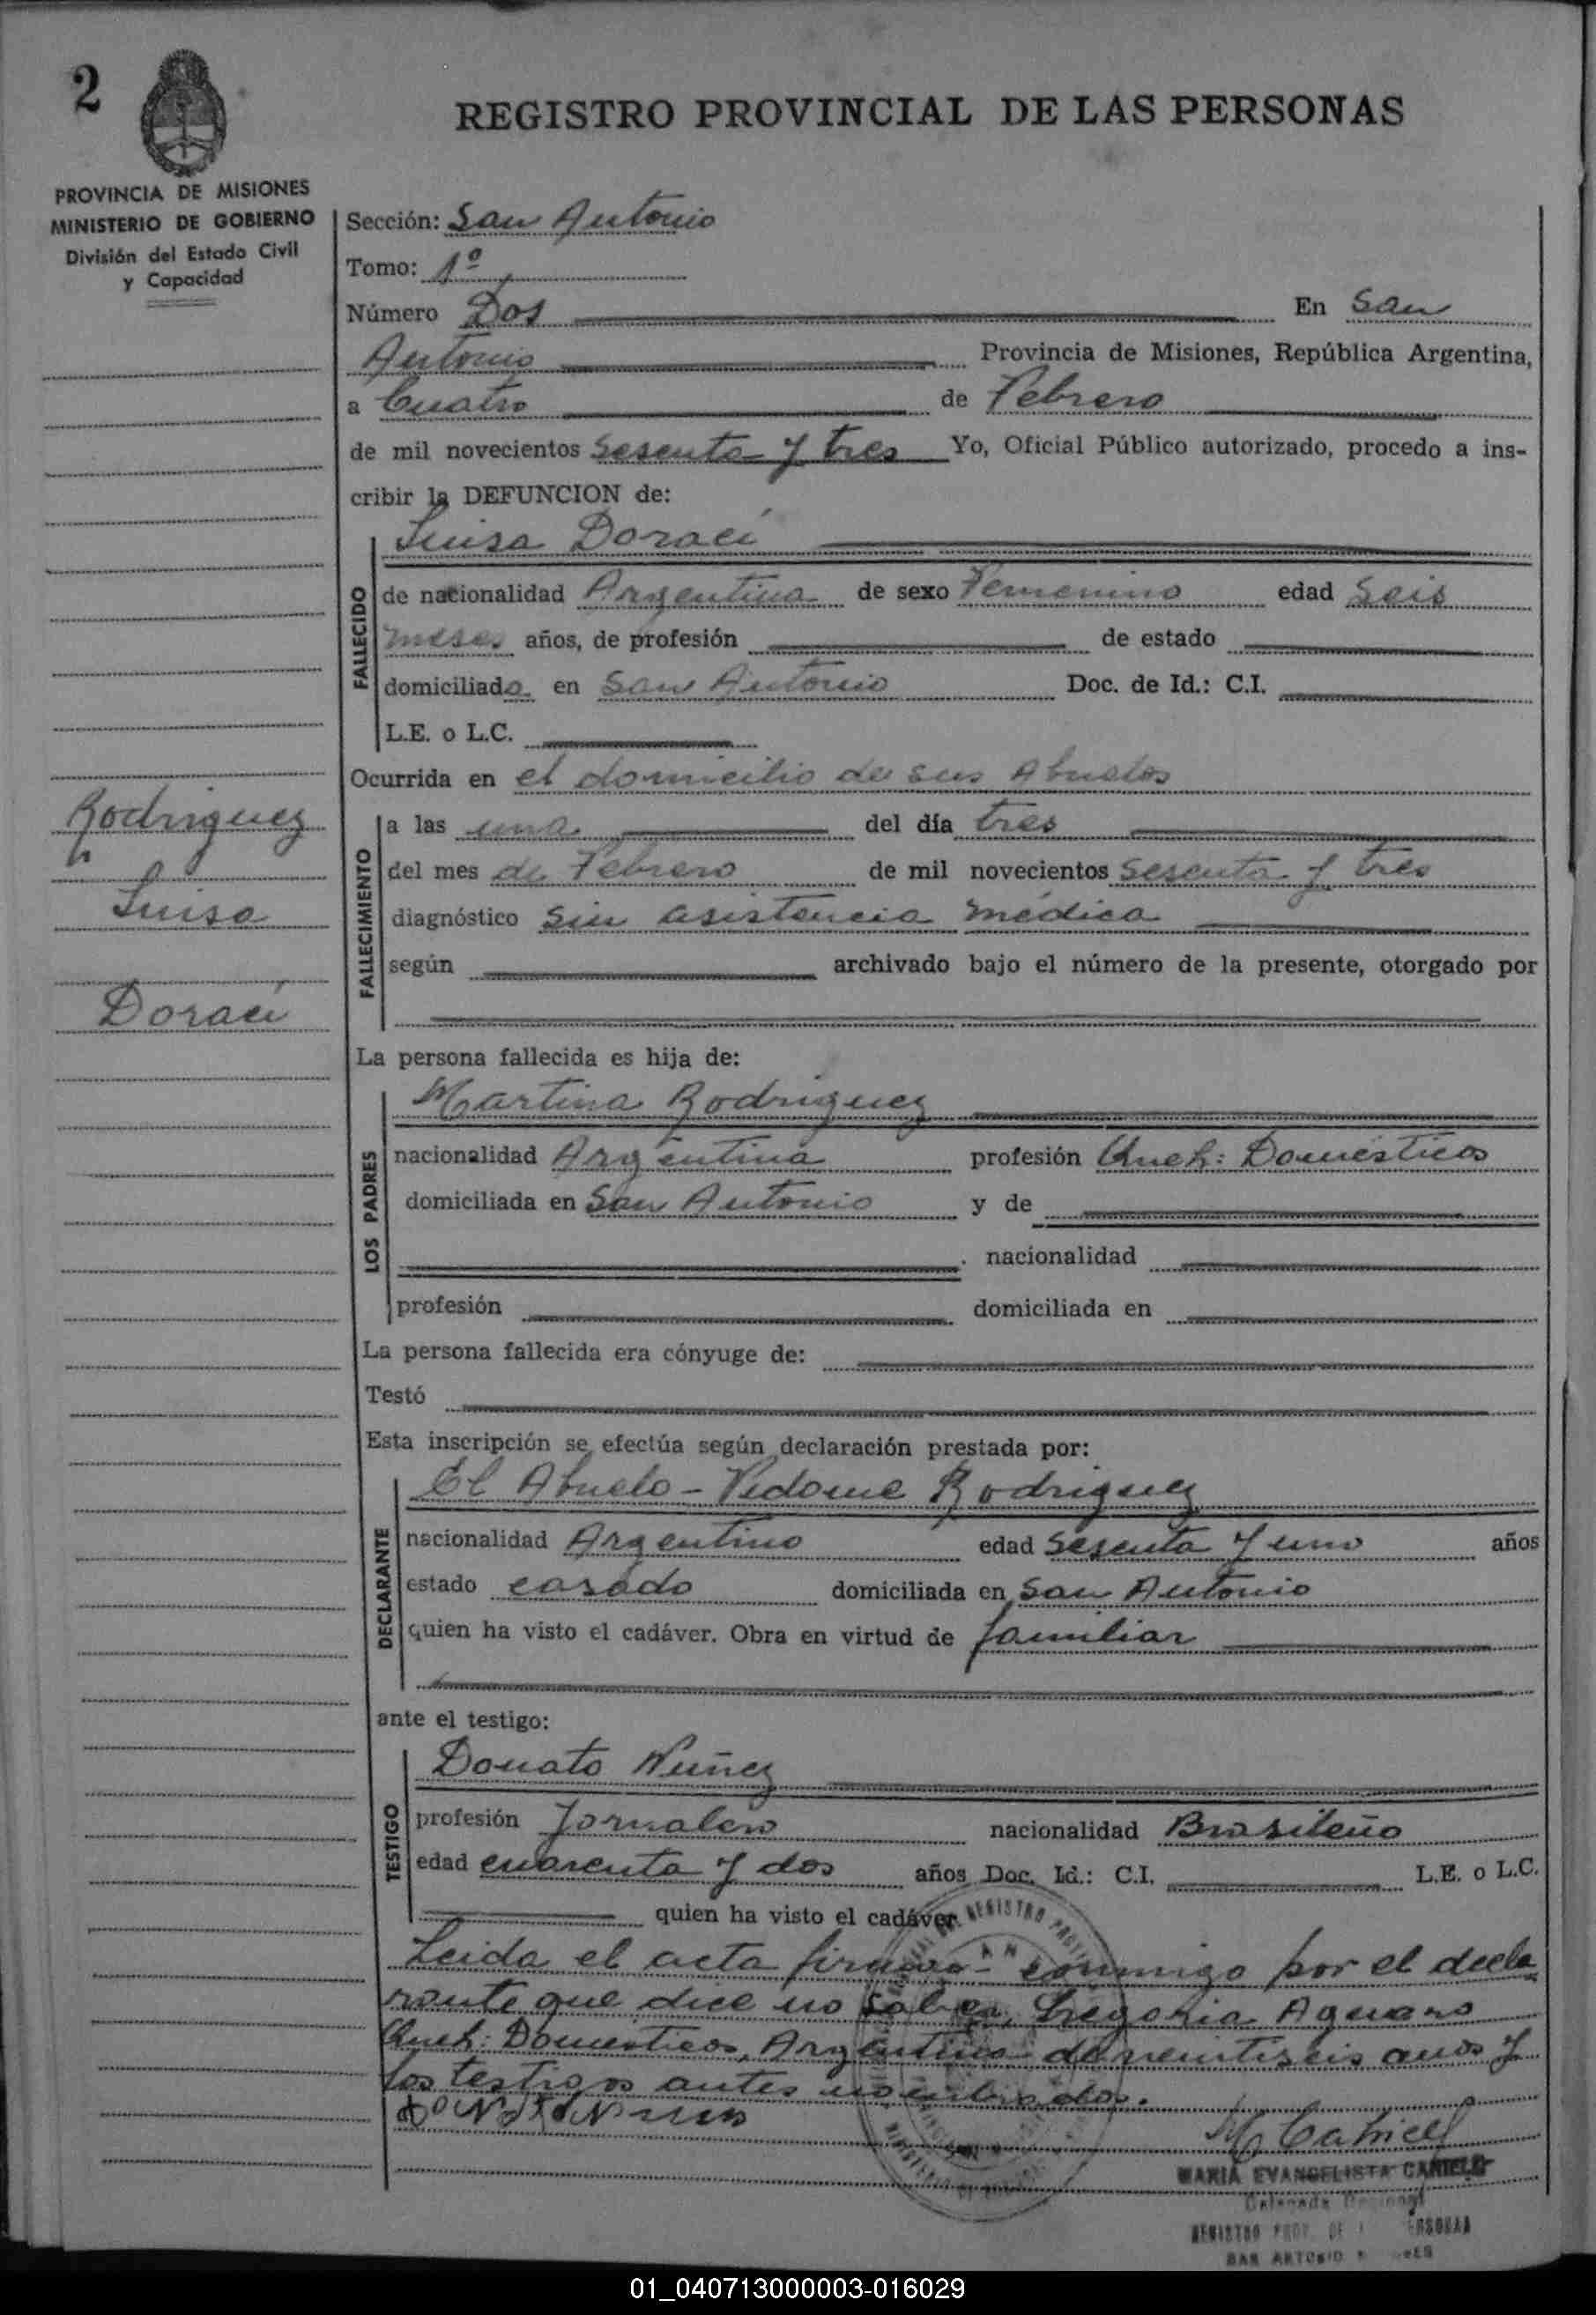 2
REGISTRO PROVINCIAL DE LAS PERSONAS
PROVINCIA DE MISIONES
MINISTERIO DE GOBIERNO
División del Estado Civil
y Capacidad
Sección: San Antonio
Tomo: 1º
Número Dos En San
Antonio Provincia de Misiones, República Argentina,
a Cuatro de Febrero
de mil novecientos Sesenta y tres Yo, Oficial Público autorizado, procedo a ins-
cribir la DEFUNCION de:
Luisa Doraci
FALLECIDO
de nacionalidad Argentina de sexo Femenino edad Seis
meses años, de profesión de estado
domiciliada en San Antonio Doc. de Id.: C.I.
L.E. o L.C.
Ocurrida en el domicilio de sus Abuelos
Rodriguez
Luisa
Doraci
FALLECIMIENTO
a las una del día tres
del mes de Febrero de mil novecientos Sesenta y tres
diagnóstico Sin asistencia médica
según archivado bajo el número de la presente, otorgado por
La persona fallecida es hija de:
LOS PADRES
Martina Rodriguez
nacionalidad Argentina profesión Queh: Domésticos
domiciliada en San Antonio y de
nacionalidad
profesión domiciliada en
La persona fallecida era cónyuge de:
Testó
Esta inscripción se efectúa según declaración prestada por:
DECLARANTE
El Abuelo - Rodriguez
nacionalidad Argentino edad Sesenta y uno años
estado casado domiciliada en San Antonio
quien ha visto el cadáver. Obra en virtud de familiar
ante el testigo:
TESTIGO
Donato Nuñez
profesión Jornalero nacionalidad Brasileño
edad cuarenta y dos años Doc. Id.: C.I. L.E. o L.C.
quien ha visto el cadáver.
Leida el acta conmigo por el decla
rante que dice no saber, Gregoria Aguero
Queh: Domésticos, Argentina de veintiseis anos y
los testigos antes nombrados.
M Cabriel
MARIA EVANGELISTA
Delegada Regional
REGISTRO PROV. DE
SAN ANTONIO
01_040713000003-016029